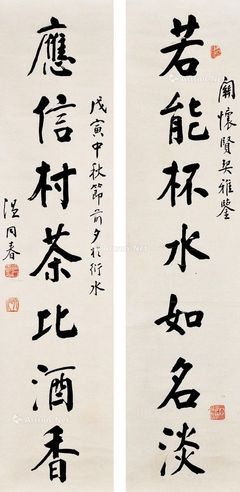 開懷賢契雅鑒
若能杯水如名淡
應信村茶比酒香
戊寅中秋節前夕於衍水
溫同春